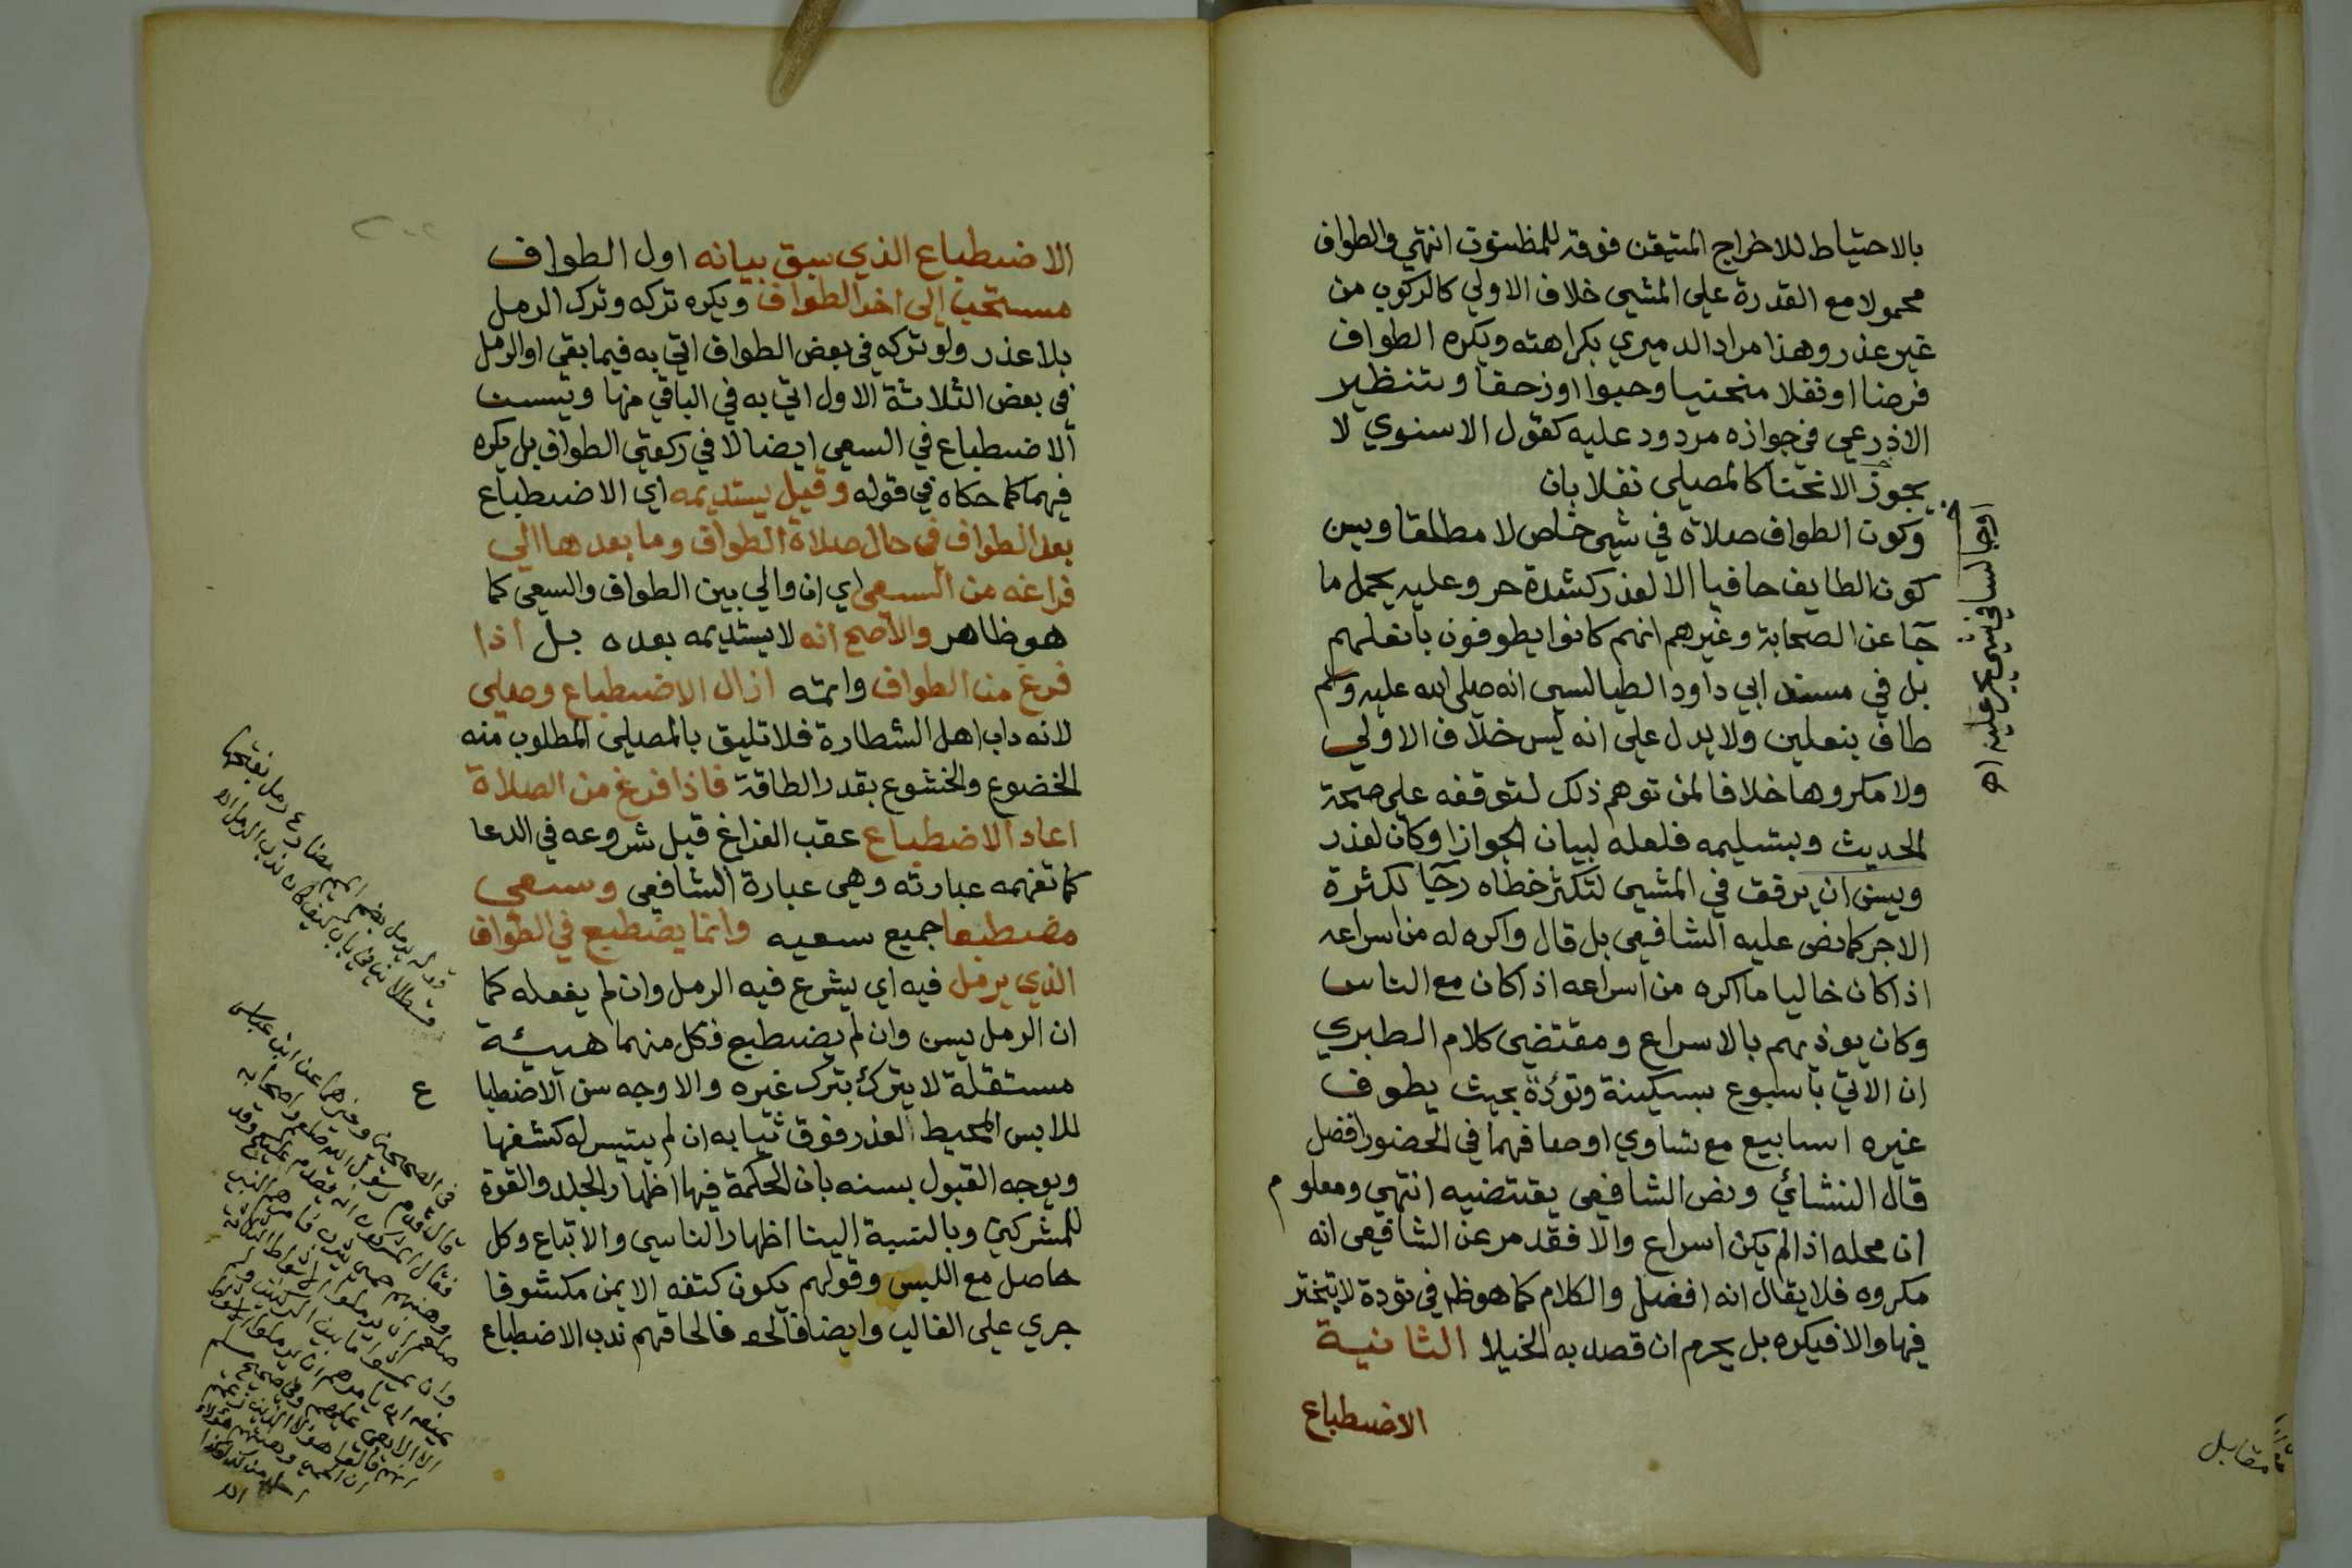 بالاحتياط للاخراج المتيقن فوقه للمظنون انتهي والطواف
محمولا مع القدرة علي المشي خلاف الاولي كالركوب من
غير عذر وهذا مراد الدميري بكراهته ويكره الطواف
فرضا او نفلا منحنيا وحبوا او زحفا وتنظير
الاذرعي في جوازه مردود عليه كقول الاسنوي لا
يجوز الانحنا كالمصلي نفلا بان
وكون الطواف صلاة في شي خاص لا مطلقا ويسن
كون الطايف حافيا الا لعذر كشدة حر وعليه يحمل ما
جا عن الصحابة وغيرهم انهم كانوا يطوفون بانعلهم
بل في مسند ابي داود الطيالسي انه صلي الله عليه وسلم
طاف بنعلين ولا يدل علي انه ليس خلاف الاولي
ولا مكروها خلافا لمن توهم ذلك لتوقفه علي صحة
الحديث وبتسليمه فلعله لبيان الجواز او كان لعذر
ويسن ان يرفق في المشي لتكثر خطاه رجا لكثرة
الاجر كما نص عليه الشافعي بل قال واكره له من اسراعه
اذا كان خاليا ما اكره من اسراعه اذا كان مع الناس
وكان يوذيهم بالاسراع ومقتضي كلام الطبري
ان الاتي باسبوع بسكينة وتؤدة بحيث يطوف
غيره اسابيع مع تساوي اوصافهما في الحضور افضل
قال النشائي ونص الشافعي يقتضيه انتهي ومعلوم
ان محله اذا لم يكن اسراع والا فقد مر عن الشافعي انه
مكروه فلا يقال انه افضل والكلام كما هو ظ في تودة لا تبختر
فيها والا فيكره بل يحرم ان قصد به الخيلا الثانية
الاضطباع
مقابل
الاضطباع الذي سبق بيانه اول الطواف
مستحب الي اخر الطواف ويكره تركه وترك الرمل
بلا عذر ولو تركه في بعض الطواف اتي به فيما بقي او الرمل
في بعض الثلاثة الاول اتي به في الباقي منها ويسن
الاضطباع في السعي ايضا لا في ركعتي الطواف بل يكره
فيهما كما حكاه في قوله وقيل يستديمه اي الاضطباع
بعد الطواف في حال صلاة الطواف وما بعدها الي
فراغه من السعي اي ان والي بين الطواف والسعي كما
هو ظاهر والاصح انه لا يستديمه بعده بل اذا
فرغ من الطواف واتمه ازال الاضطباع وصلي
لانه داب اهل الشطارة فلا تليق بالمصلي المطلوب منه
الخضوع والخشوع بقدر الطاقة فاذا فرغ من الصلاة
اعاد الاضطباع عقب الفراغ قبل شروعه في الدعا
كما تفهمه عبارته وهي عبارة الشافعي وسعي
مضطبعا جميع سعيه وانما يضطبع في الطواف
الذي يرمل فيه اي يشرع فيه الرمل وان لم يفعله كما
ان الرمل يسن وان لم يضطبع فكل منهما هيئة
مستقلة لا يترك بترك غيره والاوجه سن الاضطبا
ع
للابس المحيط لعذر فوق ثيابه ان لم يتيسر له كشفها
ويوجه القبول بسنه بان الحكمة فيها اظهار الجلد والقوة
للمشركين وبالنسبة الينا اظهار التاسي والاتباع وكل
حاصل مع اللبس وقولهم يكون كتفه الايمن مكشوفا
جري علي الغالب وايضا فالحاقهم ندب الاضطباع
قوله يرمل بضم الميم مضارع رمل بفتحها
في الصحيحين وغيرهما عن ابن عباس
قال قدم رسول الله صلعم واصحابه
فقال المشركون انه يقدم عليكم وقد